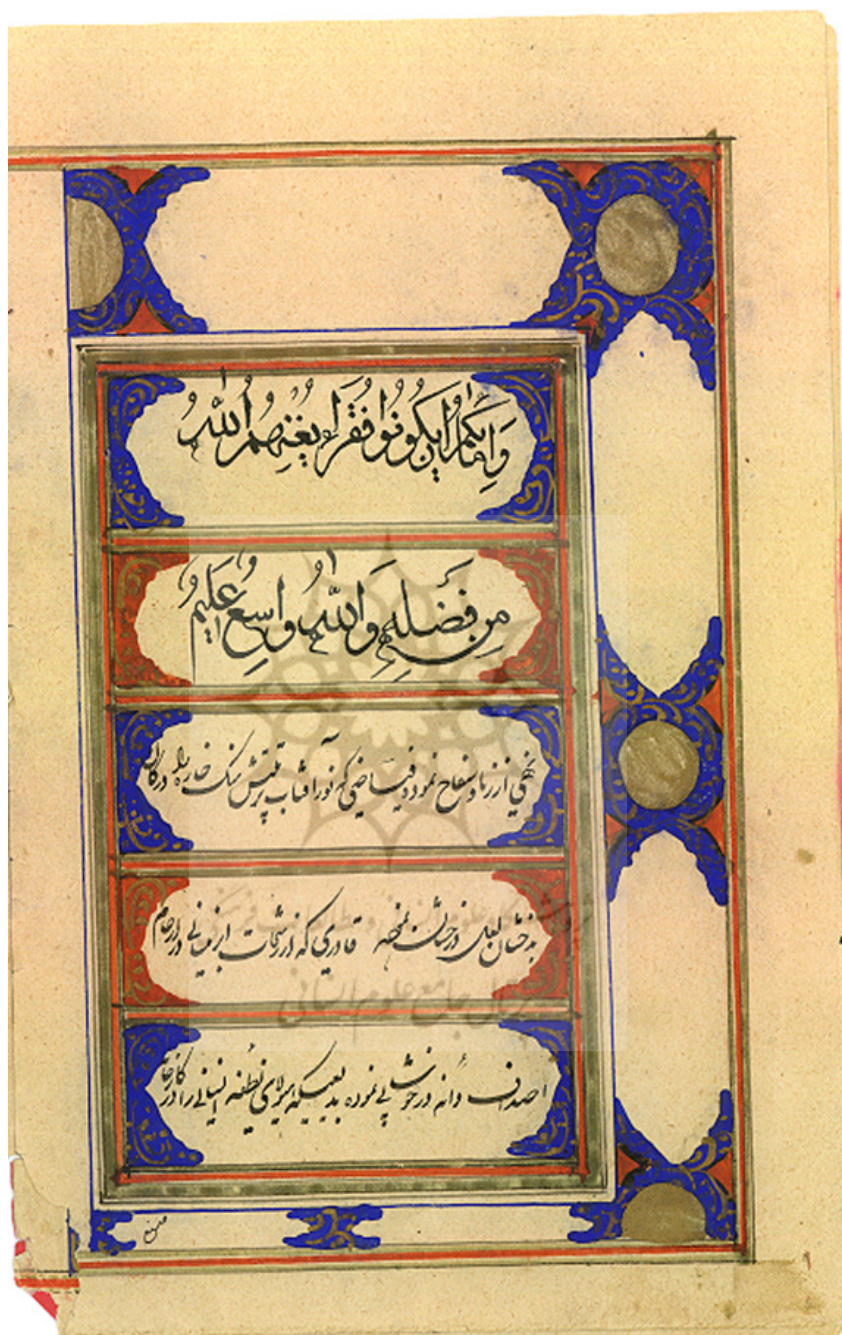 وَاِمَائِکُمْ اِنْ یَکُونُوا فُقَرَاءَ یُغْنِهِمُ اللّٰهُ
مِنْ فَضْلِهِ وَاللّٰهُ وَاسِعٌ عَلِیمٌ
نهی از زنا و سفاح نموده فیاضی که نور آفتاب تربیتش سنک خاره را در کان
بدخشان لعل درخشان نموده قادری که از رشحات ابر نیسانی در ارحام
اصداف دانه درخوشابی نموده بدیعیکه لالای نطفه انسانی را در
پرتال جامع علوم انسانی